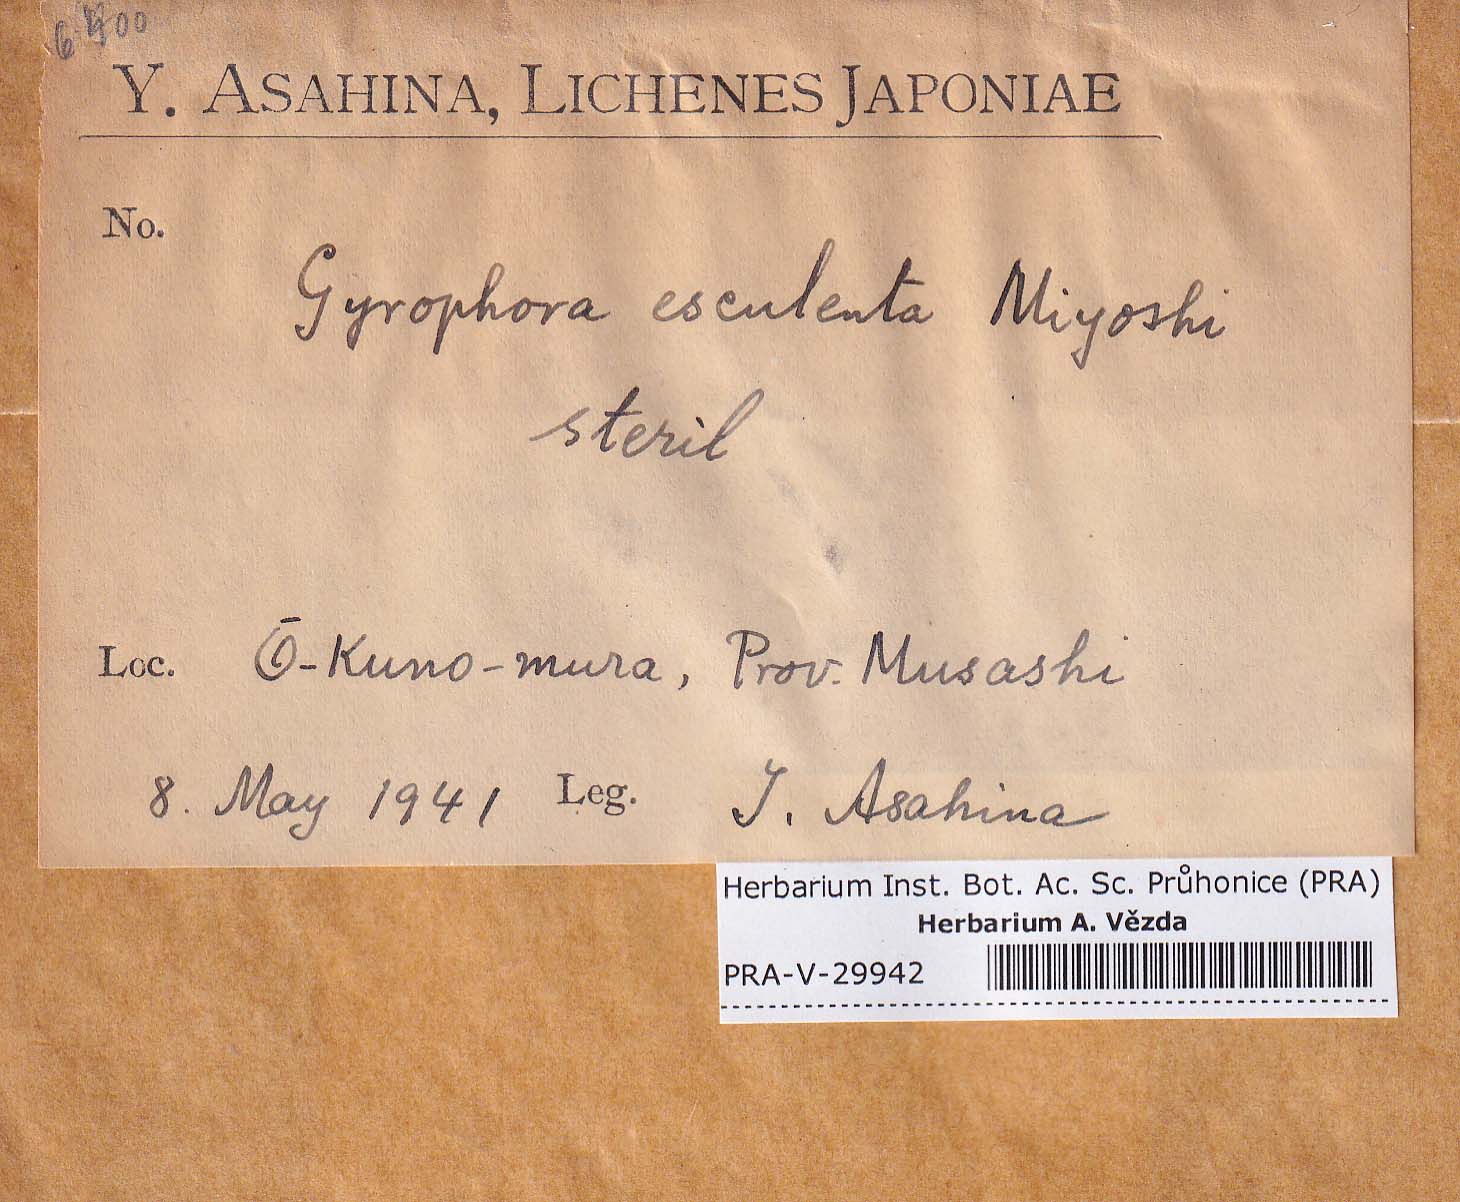 Y. ASAHINA, LICHENES JAPONIAE
No.
Gyrophora esculenta Miyoshi
steril
Loc. Ō-Kuno-mura, Prov. Musashi
8. May 1941 Leg. Y. Asahina
Herbarium Inst. Bot. Ac. Sc. Průhonice (PRA)
Herbarium A. Vězda
PRA-V-29942